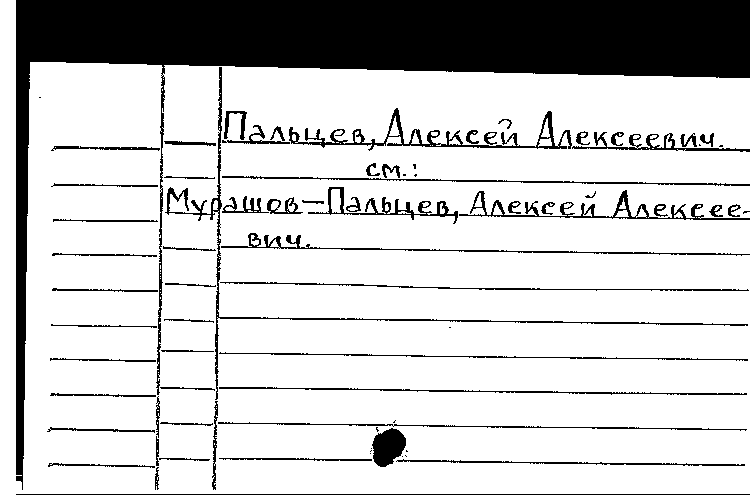 Пальцев, Алексей Алексеевич.
см.:
Мурашов-Пальцев, Алексей Алексее-
вич.